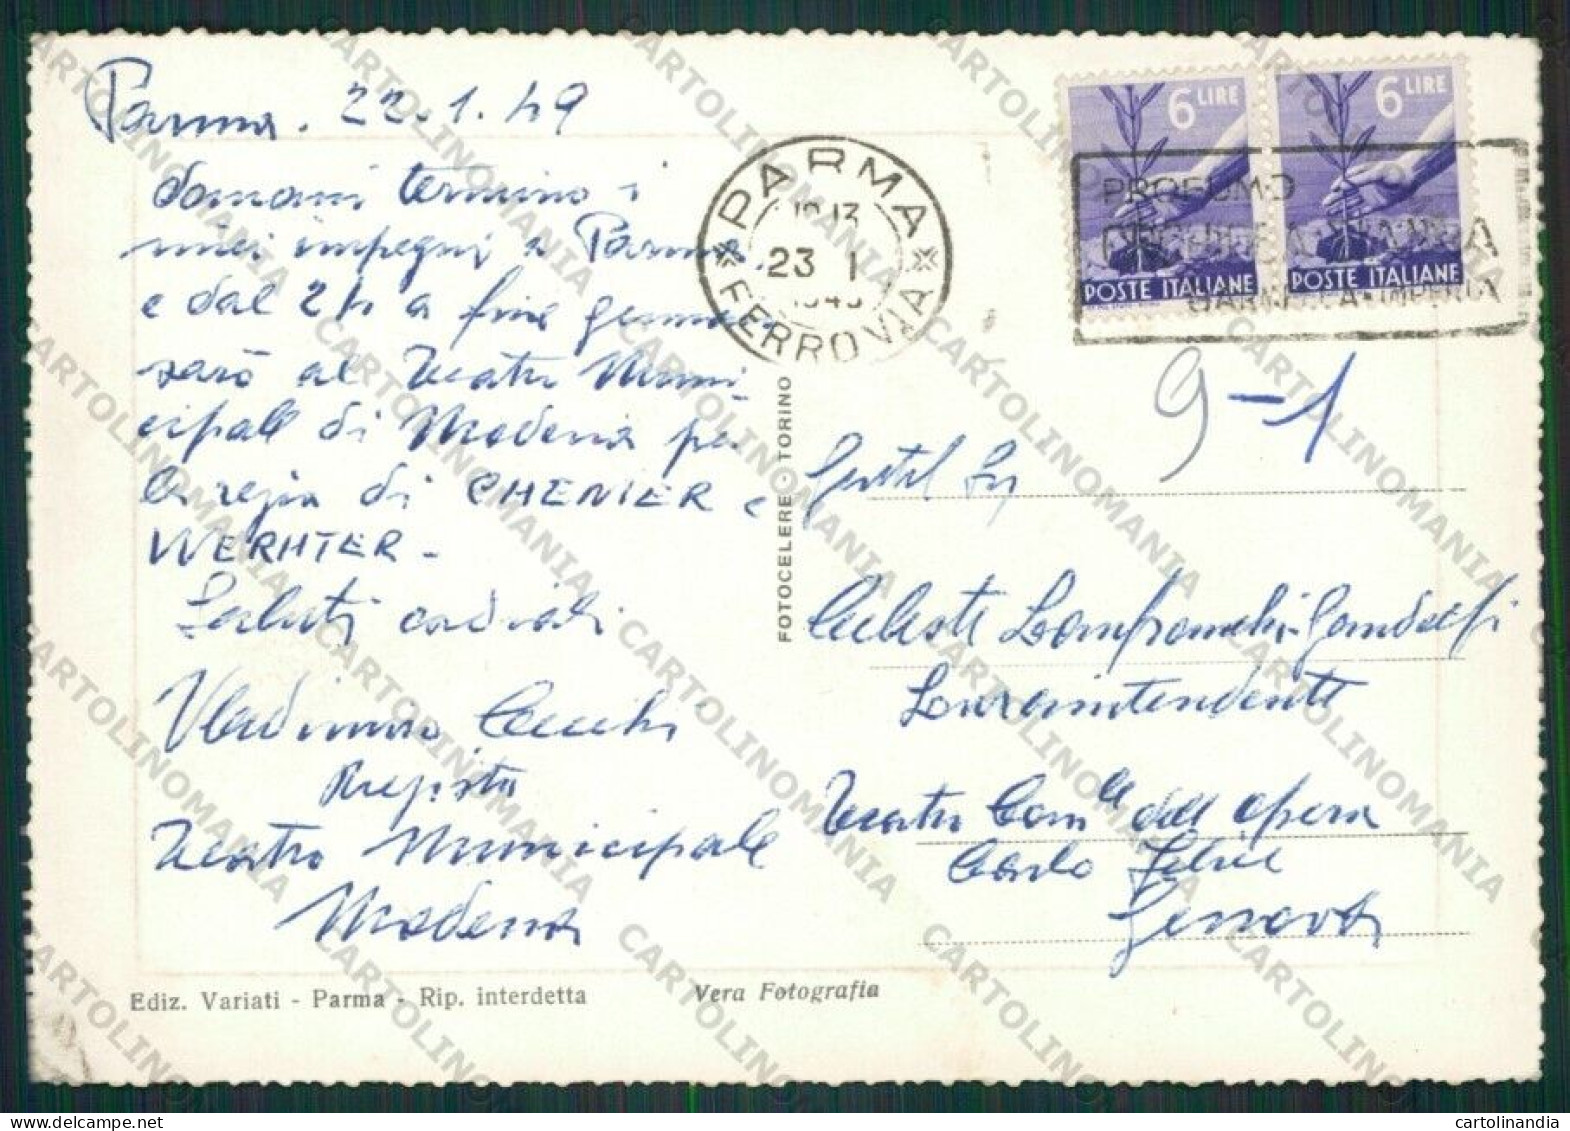 Parma. 22.1.49
domani termino i
miei impegni a Parma
e dal 24 a fine gennaio
sarò al Teatro Muni-
cipale di Modena per
la regia di CHENIER e
WERHTER -
Saluti cordiali
Vladimiro Cecchi
Regista
Teatro Municipale
Modena
Ediz. Variati - Parma - Rip. interdetta
Vera Fotografia
FOTOCELERE TORINO
PARMA
23 1
FERROVIA
6 LIRE
POSTE ITALIANE
6 LIRE
POSTE ITALIANE
PROFUMO
9-1
Gentil Sig
Celeste Lanfranchi-Gandolfi
Sovraintendente
Teatro Com.le dell'Opera
Carlo Felice
Genova
CARTOLINOMANIA
cartolinandia